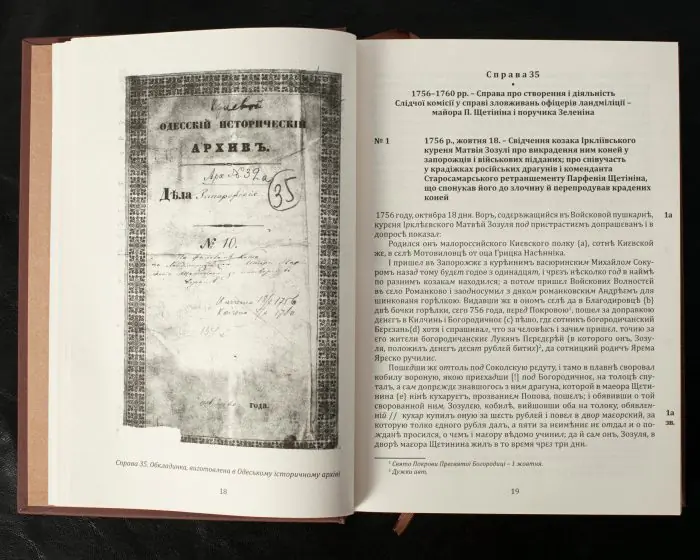 ОДЕССКІЙ ИСТОРИЧЕСКІЙ
АРХИВЪ.
Арх № 32а
35
Дѣла Запорожскіе
№ 10.
1756
1760
года.
Справа 35. Обкладинка, виготовлена в Одеському історичному архіві
18
Справа 35
•
1756–1760 рр. – Справа про створення і діяльність
Слідчої комісії у справі зловживань офіцерів ландміліції –
майора П. Щетініна і поручика Зеленіна
№ 1
1756 р., жовтня 18. – Свідчення козака Іркліївського
куреня Матвія Зозулі про викрадення ним коней у
запорожців і військових підданих; про співучасть
у крадіжках російських драгунів і коменданта
Старосамарського ретраншементу Парфенія Щетініна,
що спонукав його до злочину й перепродував крадених
коней
1756 году, октября 18 дня. Воръ, содержащийся въ Войсковой пушкарнѣ,
1а
куреня Ірклѣевского Матвѣй Зозуля под пристрастиемъ допрашованъ и в
допросѣ показал:
Родился онъ малороссийского Киевского полку (а), сотнѣ Киевской
же, в селѣ Мотовиловцѣ от оца Грицка Насѣника.
И пришел в Запорожже с курѣннимъ васюринскимъ Михайлом Соку-
ромъ назад тому будет годое з одинадцат, і чрезъ нѣсколко год в наймѣ
по разнимъ козакам находился; а потом пришел Войсковых Волностей
въ село Романково и заодносумил з дяком романковским Андрѣемъ для
шинкованя горѣлкою. Видавши же в ономъ селѣ да в Благодировцѣ (b)
двѣ бочки горѣлки, сего 756 года, перед Покровою¹, пошел за допраякою
денег в Килчинь і Богородичное (с) пѣшо, где сотникъ богородичанский
Березань(d) хотя і спрашивал, что за человѣкъ і зачим пришел, точию за
его жители богородичанские Лукянъ Передерѣй (в которого онъ, Зозу-
ля, положилъ денегъ десят рублей битих)², да сотницкий родичъ Ярема
Яреско ручилис.
Пошедши же оттоль под Соколскую редуту, і тамо в плавнѣ своровал
кобилу вороную, якою приехавши [!] под Богородичное, на толоцѣ спу-
талъ, а сам допрежде знавшогось з ним драгуна, которой в маеора Щети-
нина (е) нинѣ кухаруетъ, прозванием Попова, пошелъ; і обявивши о той
сворованной ним, Зозулею, кобилѣ, вийшовши оба на толоку, обявлен-
ній // кухар купил оную за шесть рублей і повел в двор маеорский, за
1а
зв.
которую толко едного рубля дал, а пяти за неимѣние не отдал и о по-
жданѣ просился, о чемъ і маеору вѣдомо учинил; да й сам онъ, Зозуля, в
дворѣ маеора Щетинина жилъ в то время чрез три дни.
¹ Свято Покрови Пресвятої Богородиці – 1 жовтня.
² Дужки авт.
19